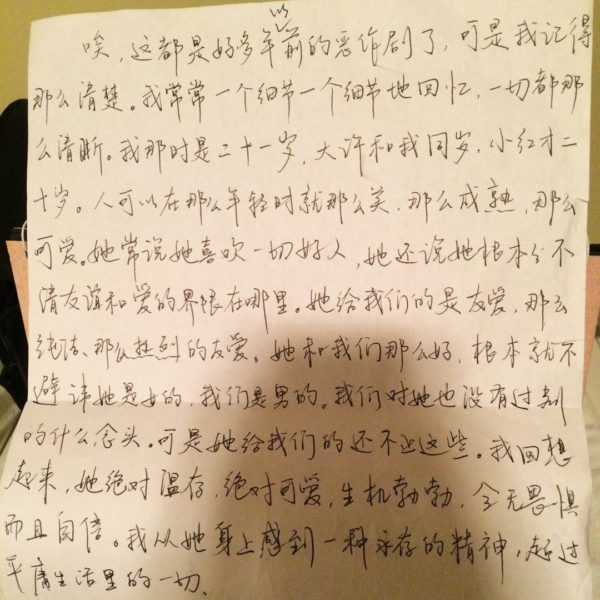 唉，这都是好多年以前的恶作剧了，可是我记得
那么清楚。我常常一个细节一个细节地回忆，一切都那
么清晰。我那时是二十一岁，大许和我同岁，小红才二
十岁。人可以在那么年轻时就那么美，那么成熟，那么
可爱。她常说她喜欢一切好人，她还说她根本分不
清友谊和爱的界限在哪里。她给我们的是友爱，那么
纯洁、那么热烈的友爱。她和我们那么好，根本就不
避讳她是女的，我们是男的。我们对她也没有过别
的什么念头。可是她给我们的还不止这些。我回想
起来，她绝对温存，绝对可爱，生机勃勃，全无畏惧
而且自信。我从她身上感到一种永存的精神，超过
平庸生活里的一切。